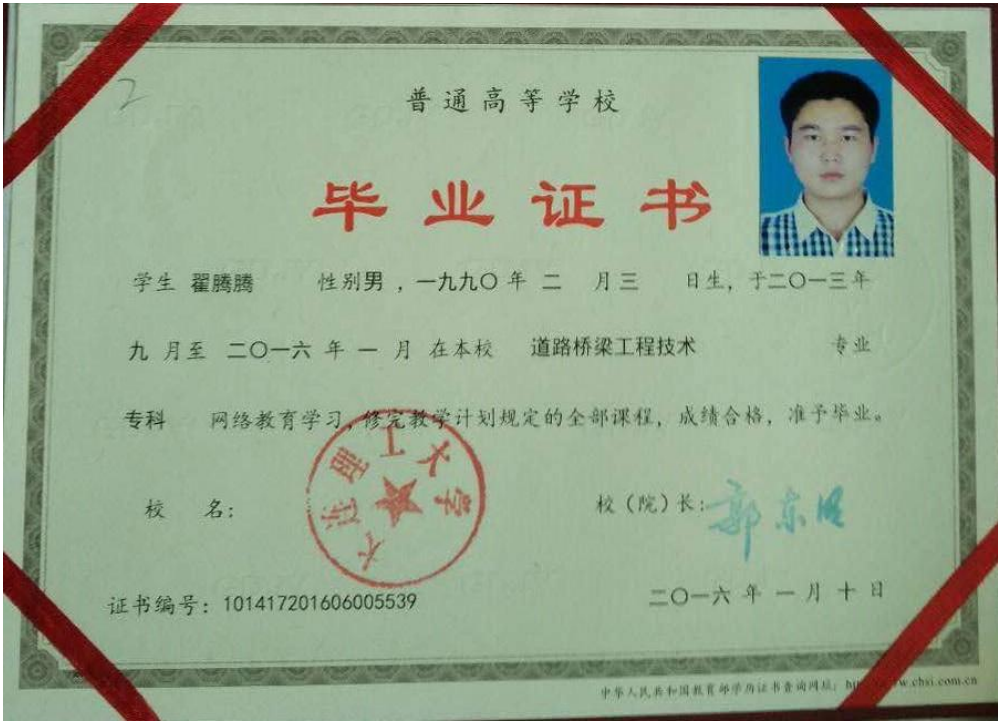 2
普通高等学校
毕业证书
学生 翟腾腾 性别男，一九九〇年 二 月三 日生，于二〇一三年
九 月至 二〇一六 年 一 月 在本校 道路桥梁工程技术 专业
专科 网络教育学习，修完教学计划规定的全部课程，成绩合格，准予毕业。
大连理工大学
校 名：
校（院）长：郭东明
证书编号：101417201606005539
二〇一六 年 一 月 十 日
中华人民共和国教育部学历证书查询网址：
.chsi.com.cn